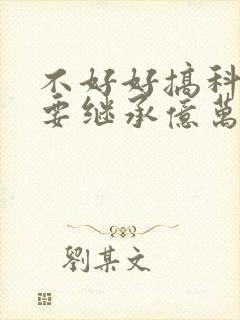 不好好搞科
要继承億萬
劉某文